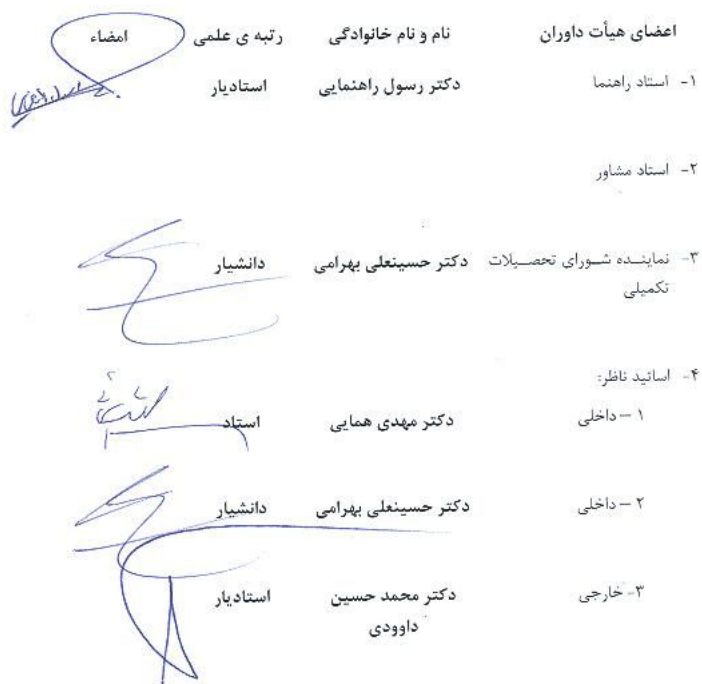 اعضای هیأت داوران نام و نام خانوادگی رتبه ی علمی امضاء
۱- استاد راهنما دکتر رسول راهنمایی استادیار
۲- استاد مشاور
۳- نماینده شورای تحصیلات دکتر حسینعلی بهرامی دانشیار
تکمیلی
۴- اساتید ناظر:
۱ – داخلی دکتر مهدی همایی استاد
۲ – داخلی دکتر حسینعلی بهرامی دانشیار
۳- خارجی دکتر محمد حسین استادیار
داوودی